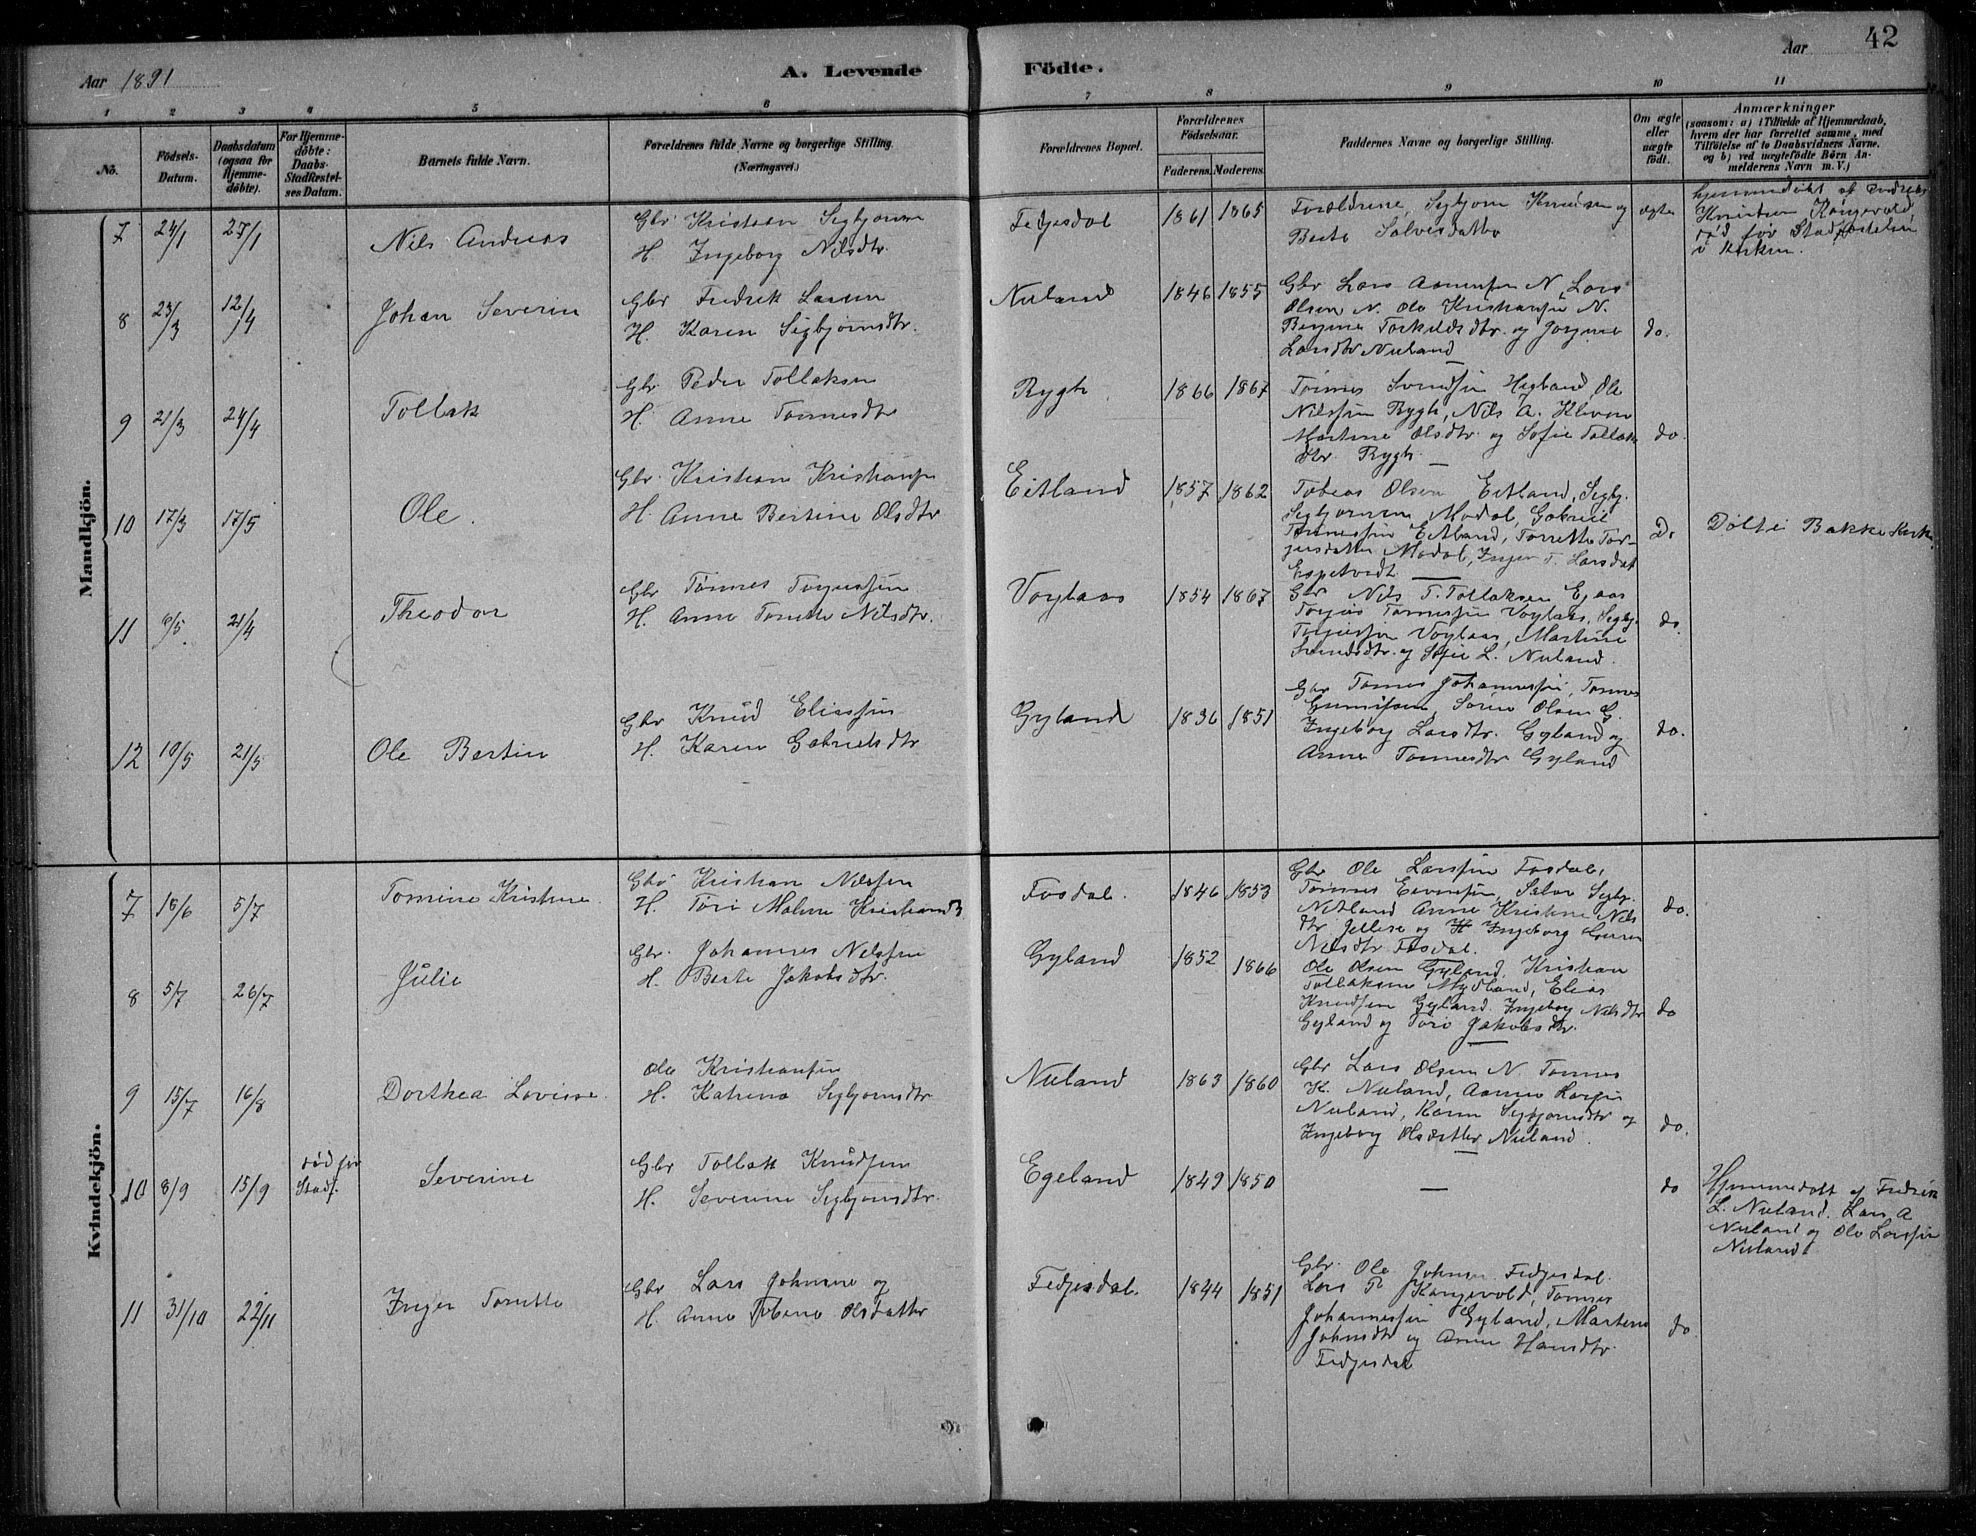 Aar 1891
A. Levende
Födte.
Aar
42
1 2 3 4 5 6 7 8 9 10 11
No.
Födsels-
Datum.
Daabsdatum
(ogsaa for
Hjemme-
döbte).
For Hjemme-
döbte:
Daabs-
Stadfæstel-
ses Datum.
Barnets fulde Navn.
Forældrenes fulde Navne og borgerlige Stilling
(Næringsvei.)
Forældrenes Bopæl.
Forældrenes
Födselsaar.
Faderens. Moderens.
Faddernes Navne og borgerlige Stilling.
Om ægte
eller
uægte
födt.
Anmærkninger
(saasom: a) i Tilfælde af Hjemmedaab,
hvem der har forrettet samme, med
Tilföielse af to Daabsvidners Navne.
og b) ved uægtefödte Börn An-
melderens Navn m. V.)
Mandkjön.
7 24/1 27/1 Nils Andreas
Gbr. Kristian Sigbjørnsen
H. Ingeborg Nilsdtr.
Fedjesdal 1861 1865
Forældrene, Sigbjørn Knudsen og
Berte Salvesdatter
ægte
hjemmedøbt af Andreas
Knudsen Kongevold,
død før Stadfæstelsen
i Kirken.
8 23/3 12/4 Johan Severin
Gbr Fredrik Larsen
H. Karen Sigbjørnsdtr.
Nuland 1846 1855
Gbr Lars Aanensen N, Lars
Olsen N. Ole Kristiansen N.
Torkildsdtr. og
Larsdtr Nuland
do.
9 21/3 24/4 Tollak
Gbr. Peder Tollaksen
H. Anne Tønnesdtr
Rygh 1866 1867
Tønnes Svendsen Høyland, Ole
Nilssen Rygh, Nils A. Kleven
Martine Olsdtr. og Sofie Tollaks
dtr Rygh.
do.
10 17/3 17/5 Ole.
Gbr. Kristian Kristiansen
H. Anne Bertine Olsdtr
Eitland 1857 1862
Tobias Olsen Eitland, Sigbj.
Sigbjørnsen Modal, Gabriel
Tønnessen Eitland, Torrette Tor-
jusdatter Modal, Inger T. Larsdat
Espetvedt
Do
Døbt i Bakke Kirke
11 6/5 21/4 Theodor
Gbr Tønnes Torjussen
H. Anne Torrette Nilsdtr.
Voglaas 1854 1867
Gbr Nils T. Tollaksen Egaas
Torjus Tønnessen Voglaas, Sigbj.
Torjussen Voglaas, Martine
Svendsdtr. og Sofie L. Nuland.
do.
12 10/5 21/5 Ole Bertin
Gbr Knud Eliassen
H. Karen Gabrielsdtr
Gyland 1836 1851
Gbr Tønnes Johannessen, Tønnes
Søren Olsen G.
Ingeborg Larsdtr. Gyland og
Anne Tønnesdtr Gyland
do.
Kvindekjön.
7 18/6 5/7 Tomine Kristine.
Gbr Kristian Nilssen
H. Tori Malene Kristiansd.
Fosdal. 1846 1853
Gbr Ole Larssen Fosdal,
Tønnes Eivensen, Salve Sigbj.
Netland Anne Kristine Nils
dtr. Jellese og Ingeborg
Nilsdtr Fosdal.
do.
8 5/7 26/7 Julie
Gbr. Johannes Nilssen
H. Berte Jakobsdtr.
Gyland 1852 1866
Ole Olsen Gyland, Kristian
Tollaksen Mydland, Elias
Knudsen Gyland. Ingeborg Nilsdtr
Gyland og Tori Jakobsdtr.
do
9 15/7 16/8 Dorthea Lovise.
Ole Kristiansen
H. Katrina Sigbjørnsdtr
Nuland 1863 1860
Gbr Lars Olsen N. Tønnes
K. Nuland, Aanen Larsen
Nuland, Karen Sigbjørnsdtr og
Ingeborg Olsdatter Nuland.
do.
10 8/9 15/9 død før
Stadf.
Severine
Gbr Tollak Knudsen
H. Severine Sigbjørnsdtr.
Egeland 1849 1850
—
do
Hjemmedøbt af Fredrik
L. Nuland. Lars A
Nuland og Ole Larssen
Nuland.
11 31/10 22/11 Inger Torrette
Gbr Lars Johnsen og
H. Anne Tobine Olsdatter
Fedjesdal. 1844 1851
Gbr. Ole Johnsen Fedjesdal.
Lars P. Kongevold, Tønnes
Johannessen Gyland, Martine
Johnsdtr og Anne Hansdtr.
Fedjesdal
do